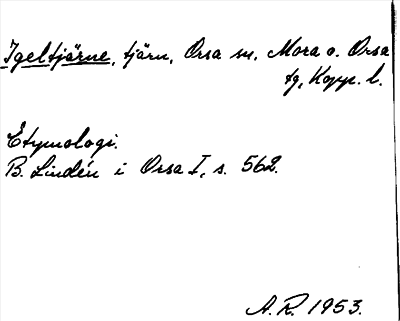 Igeltjärne, tjärn, Orsa sn, Mora o. Orsa
tg, Kopp. l.
Etymologi.
B. Lindén i Orsa I, s. 562.
A.R. 1953.